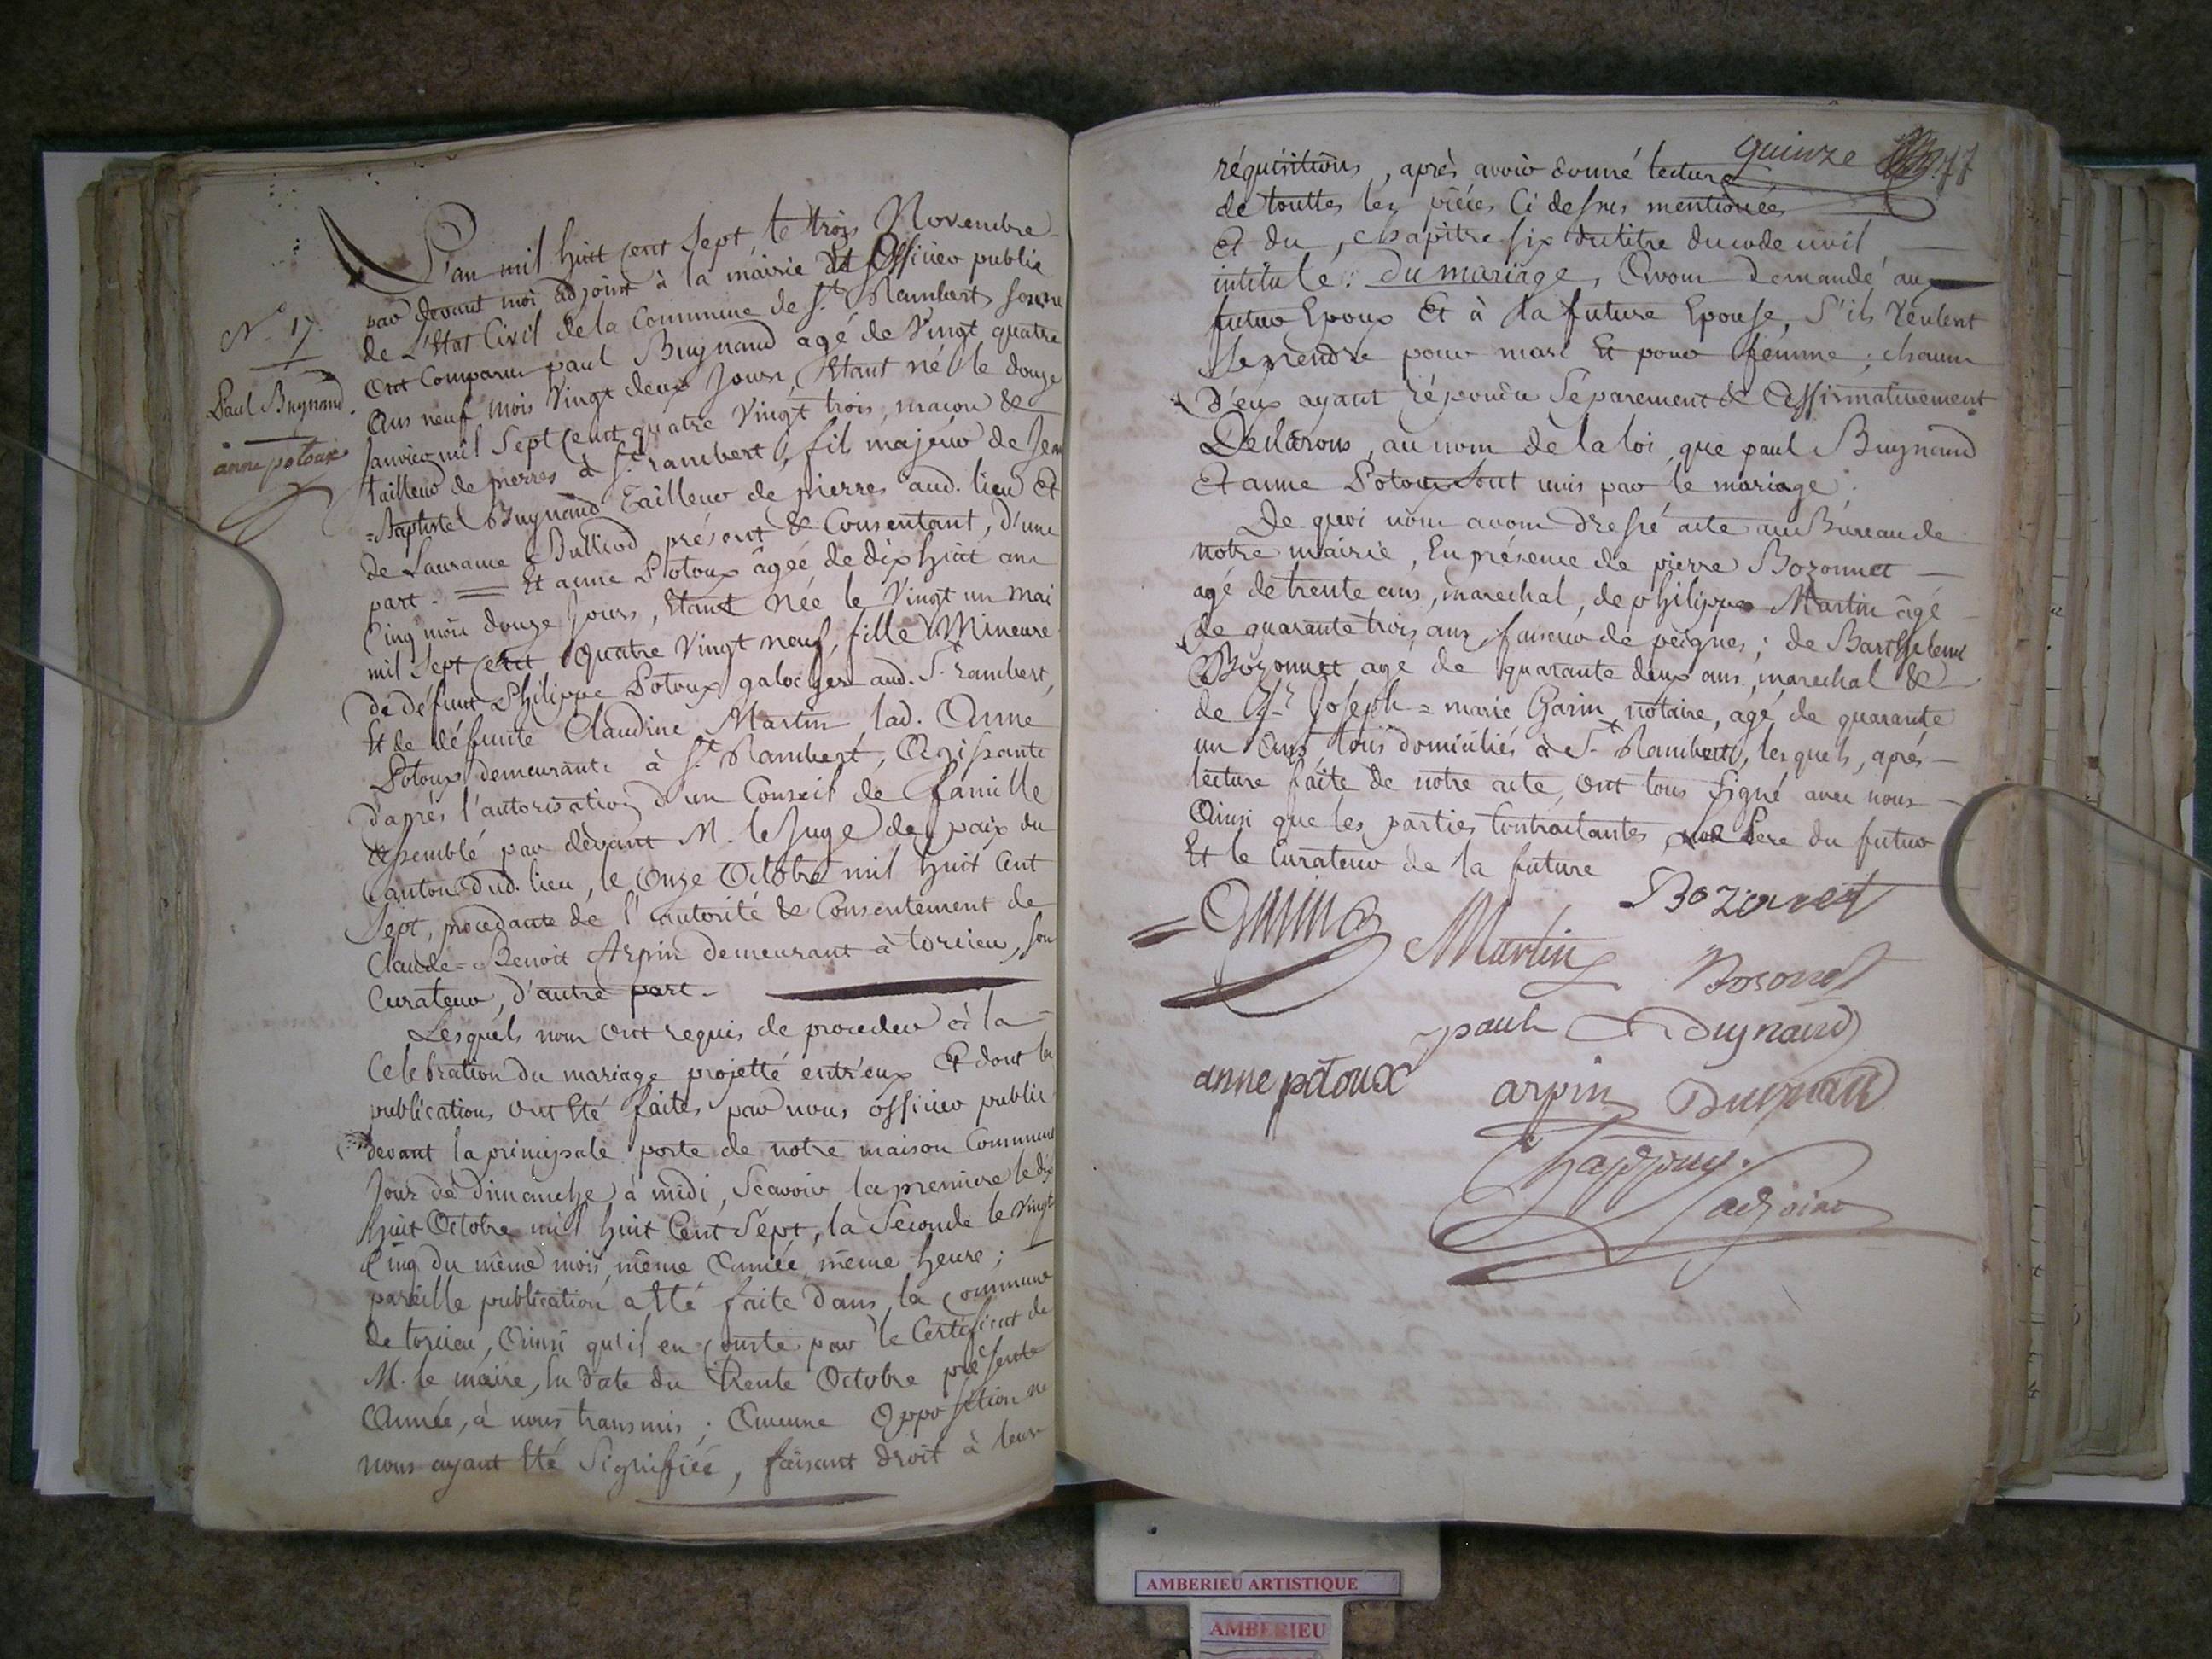 N.° 17
Paul Buynand
anne potoux
L'an mil huit cent sept, le trois Novembre
par devant moi adjoint à la mairie Et Officier public
de L'Etat Civil de la Commune de S.t Rambert, soussné
Ont Comparu paul Buynand agé de Vingt quatre
Ans neuf mois Vingt deux Jours, Etant né le douze
Janvier mil Sept Cent quatre Vingt trois, macon &
tailleur de pierres à S.t rambert, fils majeur de Jean
=Baptiste Buynand Tailleur de pierres aud. lieu Et
de Laurance Dulliod présent & Consentant, d'une
part. = Et anne Potoux âgée de dix huit ans
Cinq mois douze Jours, Etant Née le Vingt un mai
mil Sept Cent Quatre Vingt neuf, fille Mineure
de défunt Philippe Potoux galocher aud. S.t rambert,
Et de défunte Claudine Martin lad. Anne
Potoux demeurante à S.t Rambert, Agissante
d'aprés l'autorisation d'un Conseil de famille
assemblé par devant M. le Juge de paix du
Canton dud. lieu, le Onze Octobre mil huit Cent
Sept, procedante de l'autorité & Consentement de
Claude=Benoit Arpin demeurant à torcieu, son
Curateur, d'autre part.
Lesquels nous Ont requis de proceder à la
Celebration du mariage projetté entr'eux Et dont les
publications ont Eté faites par nous officier public
devant la principale porte de notre maison Commune
Jour de dimanche à midi, Scavoir la premiere le dix
huit Octobre mil huit Cent Sept, la Seconde le Vingt
Cinq du même mois même Année même heure;
pareille publication a Eté faite dans la Commune
de torcieu, Ainsi qu'il en Conste par le Certificat de
M. le maire, En date du trente Octobre présente
Année, à nous transmis; Aucune Opposition ne
nous ayant Eté Signifiée, faisant droit à leurs
quinze 77
réquisitions, après avoir donné lecture
de touttes les pièces Ci dessus mentionées
Et du, chapitre six du titre du code civil
intitulé: du mariage, Avons demandé au
futur Epoux Et à la future Epouse, S'ils Veulent
Se prendre pour mari Et pour femme; chacun
d'eux ayant répondu Séparement & Affirmativement
Declarons, au nom de la loi, que paul Buynand
Et anne Potoux Sont unis par le mariage.
De quoi nous avons dressé acte au Bureau de
notre mairie, En présence de pierre Bozonnet
agé de trente ans, marechal, de philippe Martin âgé
de quarante trois ans, faiseur de peignes; de Barthelemi
Bozonnet agé de quarante deux ans, marechal &
de Joseph=marie Garin notaire, agé de quarante
un Ans, tous domiciliés à S.t Rambert, lesquels, après
lecture faite de notre acte, Ont tous Signé avec nous
Ainsi que les parties Contractantes, Pere du futur
Et le Curateur de la future
Bozonnet
Garin
Martin
Bosonet
paul Buynand
anne potoux
arpin
Buynand
Chappuy.
adjoint
AMBERIEU ARTISTIQUE
AMBERIEU